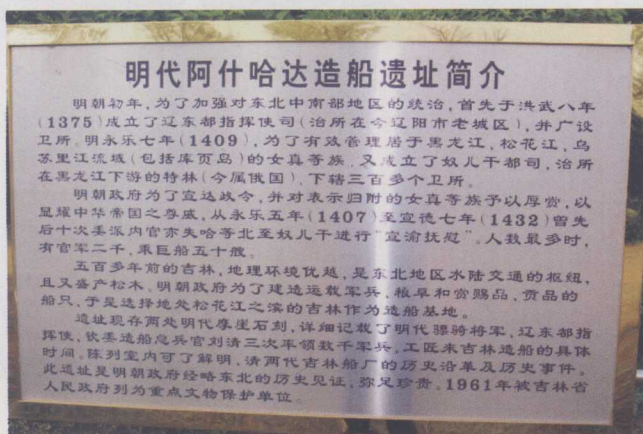 明代阿什哈达造船遗址简介
明朝初年，为了加强对东北中南部地区的统治，首先于洪武八年
(1375)成立了辽东都指挥使司(治所在今辽阳市老城区)，并广设
卫所。明永乐七年(1409)，为了有效管理居于黑龙江、松花江、乌
苏里江流域(包括库页岛)的女真等族，又成立了奴儿干都司，治所
在黑龙江下游的特林(今属俄国)，下辖三百多个卫所。
明朝政府为了宣达政令，并对表示归附的女真等族予以厚赏，以
显耀中华帝国之尊威，从永乐五年(1407)至宣德七年(1432)曾先
后十次委派内官亦失哈等北至奴儿干进行“宣谕抚慰”。人数最多时，
有官军二千，乘巨船五十艘。
五百多年前的吉林，地理环境优越，是东北地区水陆交通的枢纽，
且又盛产松木。明朝政府为了建造运载军兵，粮草和赏赐品，贡品的
船只，于是选择地处松花江之滨的吉林作为造船基地。
遗址现存两处明代摩崖石刻，详细记载了明代骠骑将军、辽东都指
挥使，钦委造船总兵官刘清三次率领数千军兵，工匠来吉林造船的具体
时间。陈列室内可了解明、清两代吉林船厂的历史沿革及历史事件。
此遗址是明朝政府经略东北的历史见证，弥足珍贵。1961年被吉林省
人民政府列为重点文物保护单位。